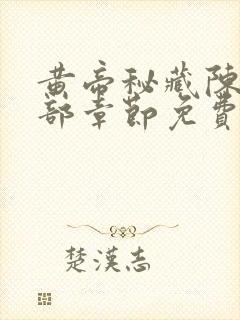 黄帝秘藏陳
部章節免費
楚漢志